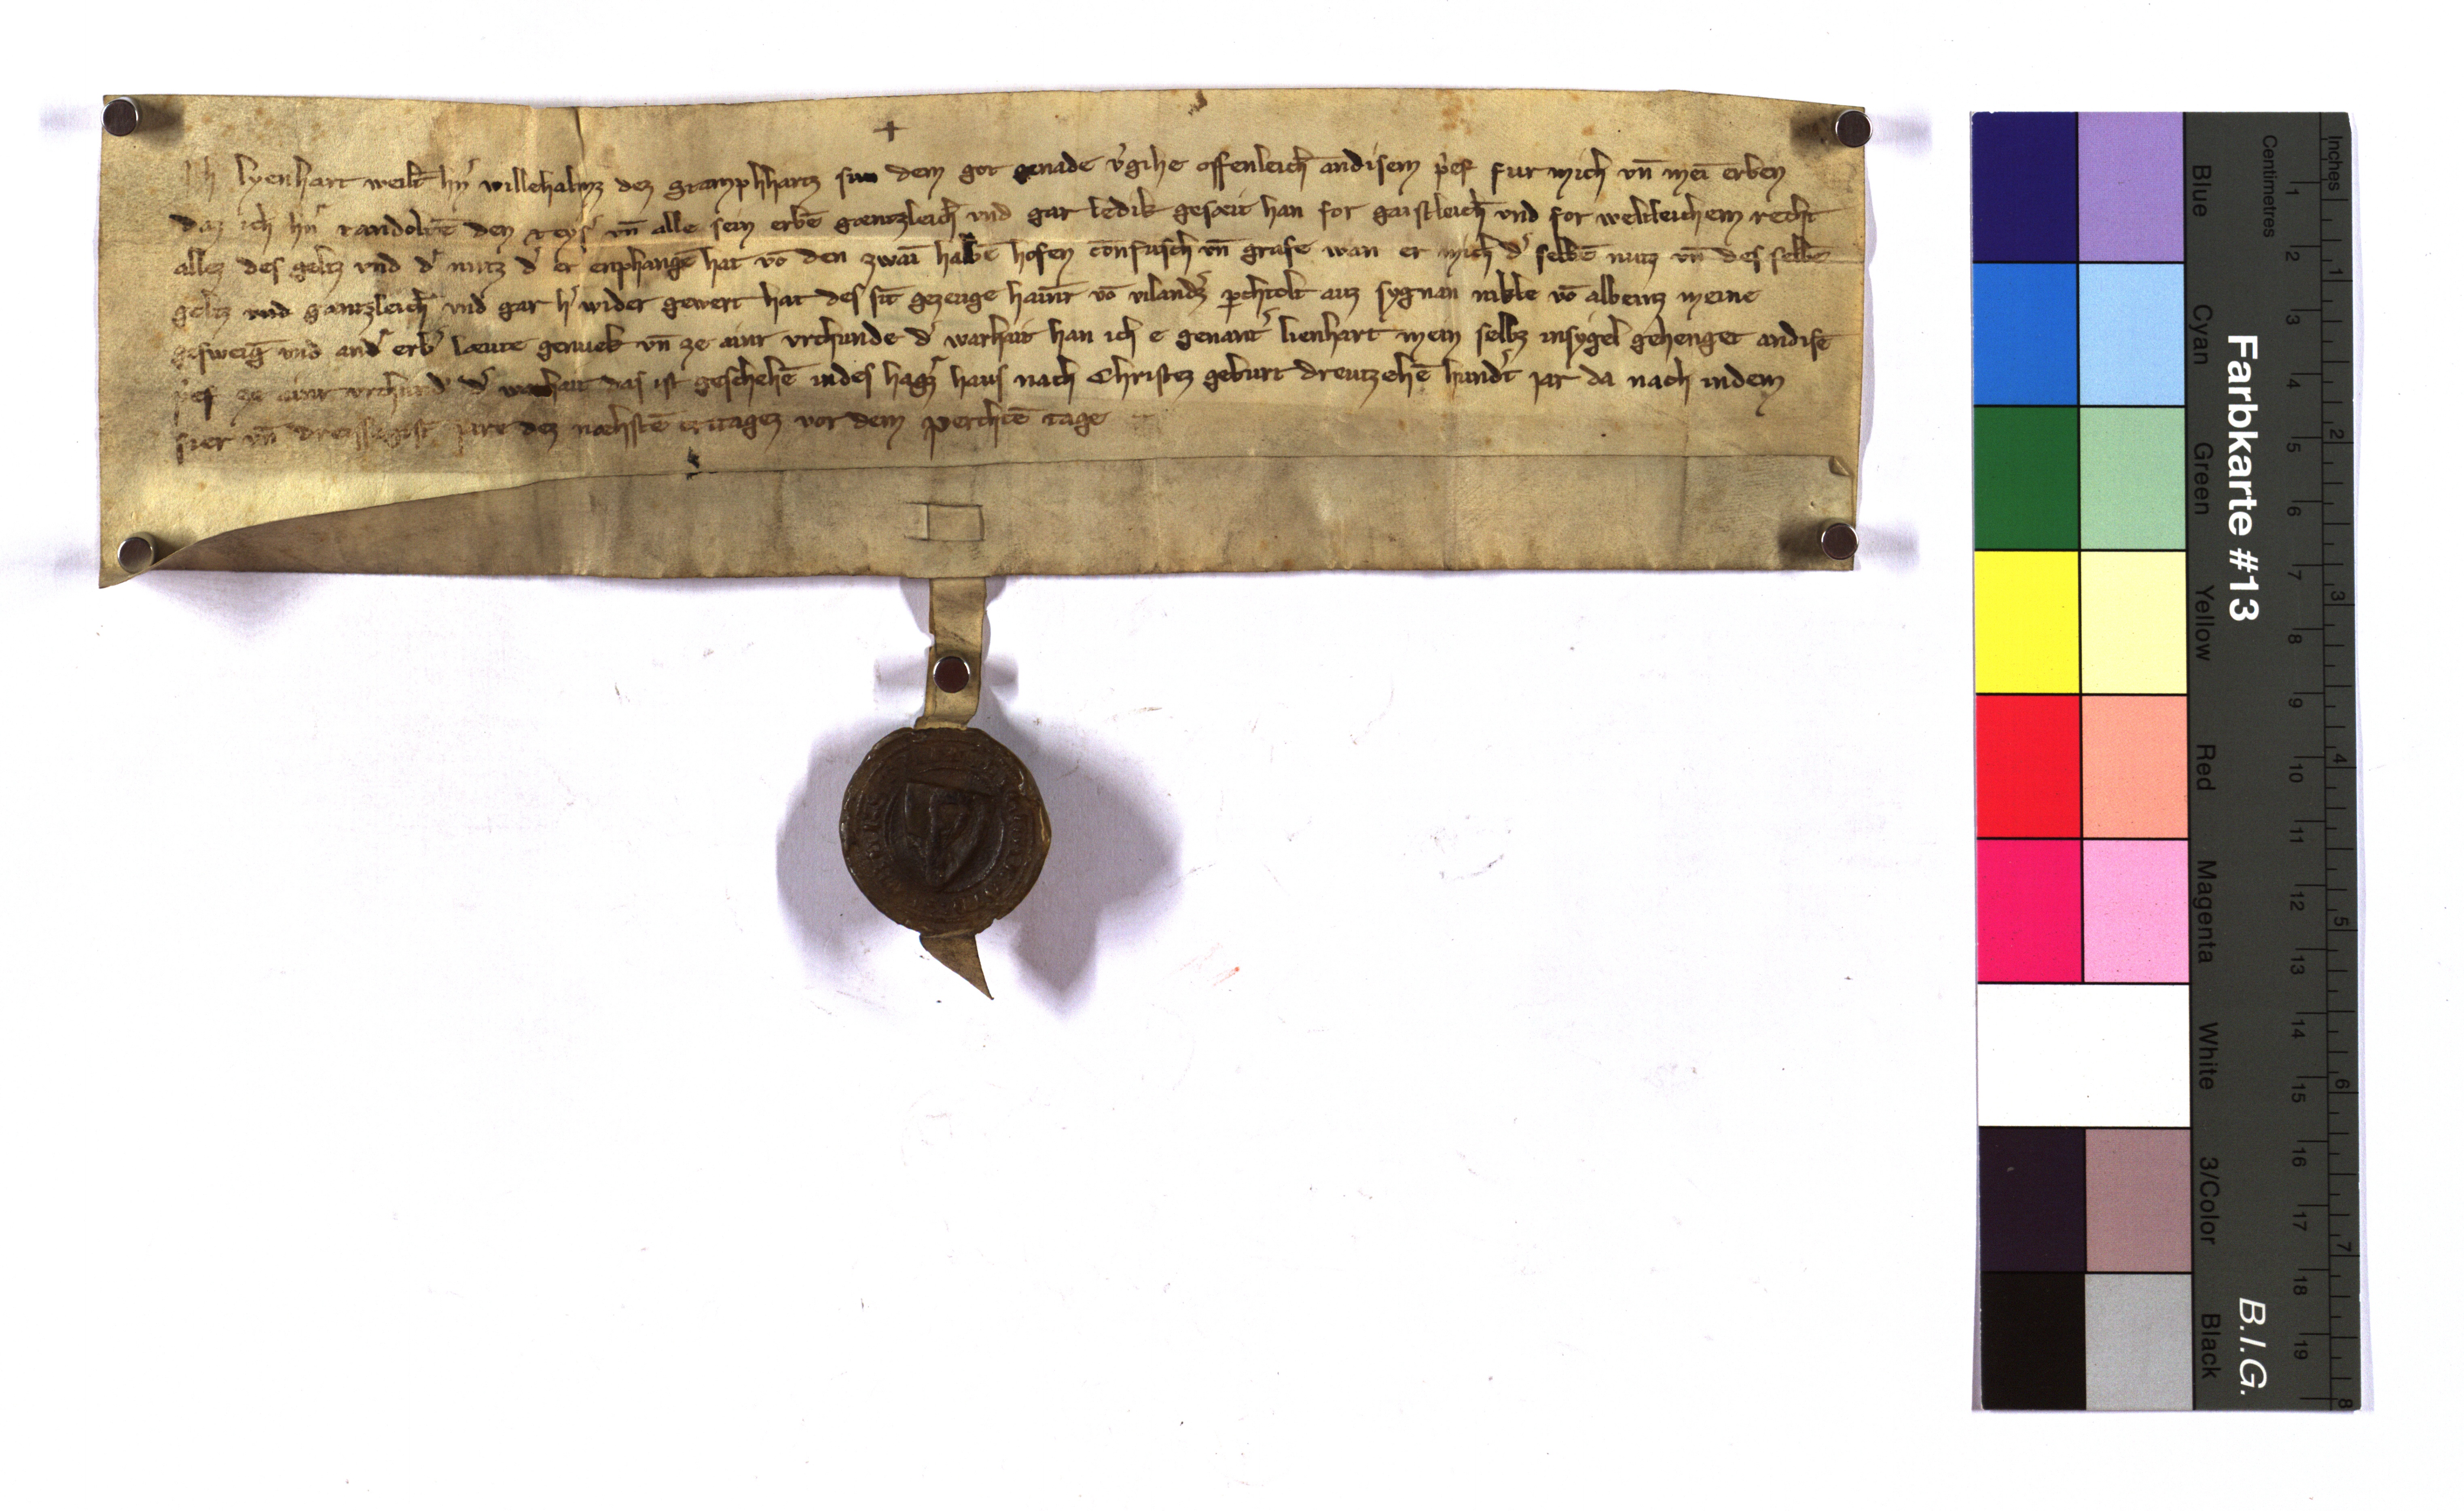 +
Ich lyenhart weilt hn̄ willehalmz dez gramphhartz sun dem got genade v̓gihe offenleich andisem p̓ef fur mich vn̄ mei erben
daz ich hn̄ randoltē den reys̓ vn̄ alle sein erbē gæntzleich vnd gar ledik gesæit han for gaistleich vnd for weltleichem recht
allez des geltz vnd d̓ nutz d̓ er enphangē hat vō den zwaī halbē hofen vn̄ grafe wan er mich d̓ selbē nutz vn̄ des selbē
geltz vnd gantzleich vnd gar h̓ wider gewert hat des sīt gezeuge vō p̱chtolt auz sygnan nikle vō albeintz meine
gesweig̅ vnd and̓ erb̓ læute genuek vn̄ ze ainr vrchunde d̓ warhait han ich e genant̓ lienhart mein selbz insygel gehenget andisē
p̓ef ze ainr vrchund̓ d̓ warhait das ist geschehē indes hagz̓ haus nach Christez geburt dreutzehē hund̓t iar da nach indem
fier vn̄ dreissigist̓ iare dez næhstē vor dem perchtē tage
Farbkarte #13
B.I.G.
Centimetres
Inches
Blue Cyan Green Yellow Red Magenta White 3/Color Black
1 2 3 4 5 6 7 8 9 10 11 12 13 14 15 16 17 18 19
1 2 3 4 5 6 7 8